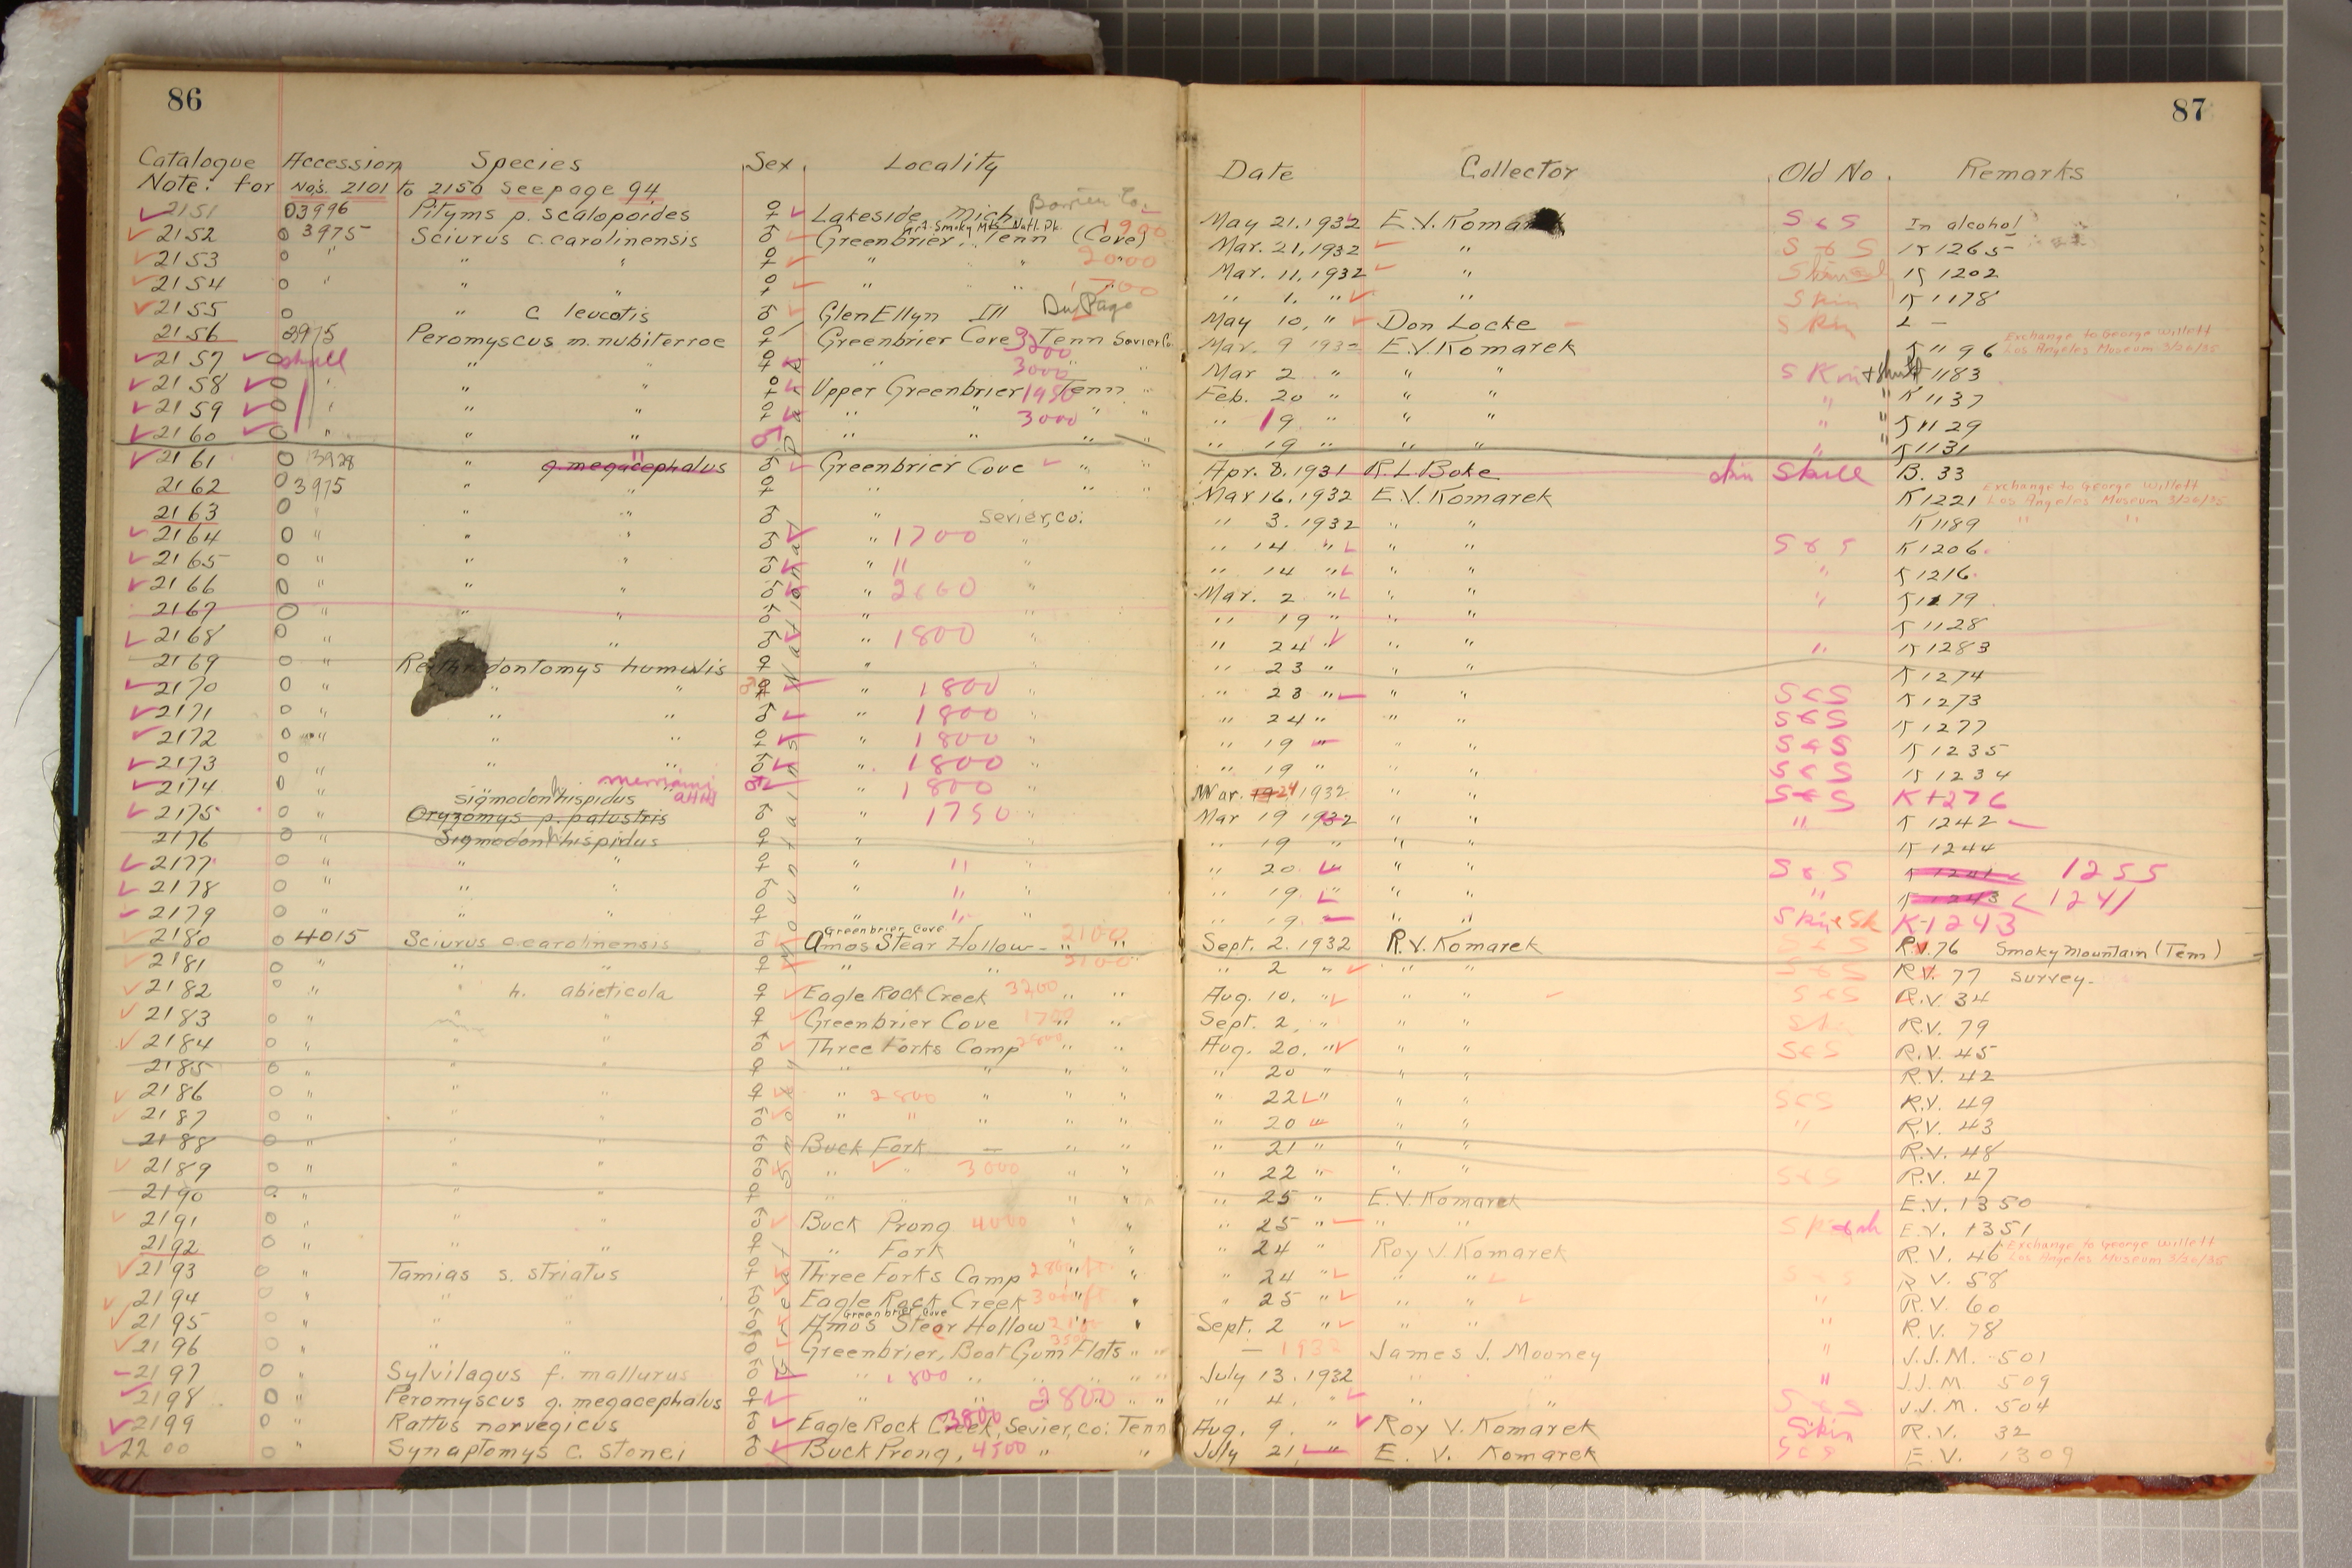 86
87
Catalogue Accession Species Sex Locality Date Collector Old No. Remarks
Note: for No's. 2101 to 2150 see page 94.
2151 03996 Pityms p. scalopoides ♀ Lakeside, Mich. Berrien Co. May 21, 1932 E.V. Komarek S & S In alcohol
2152 0 3975 Sciurus c. carolinensis ♂ Greenbrier, Tenn (Cove) Grt. Smoky Mts. Natl. Pk. 1900 Mar. 21, 1932 " S & S K 1265
2153 0 " " " ♀ " " 2000 Mar. 11, 1932 " K 1202
2154 0 " " " ♀ " " " 1. " " Skin K 1178
2155 0 " c leucotis ♂ Glen Ellyn Ill Du Page May 10, " Don Locke Skin 2 —
2156 3975 Peromyscus m. nubiterrae ♀ Greenbrier Cove Tenn Sevier Co. Mar. 9 1932 E.V. Komarek K 1196 Exchange to George Willett Los Angeles Museum 3/20/35
2157 0 skull " " 3200 " Mar 2 " " " Skin + skull K 1183
2158 0 " " " ♀ Upper Greenbrier 3000 Tenn " Feb. 20 " " " " " K 1137
2159 0 " " " ♀ " " 1950 " " " 19 " " " " " K 1129
2160 0 " " " ♂ " " 3000 " " " 19 " " " " " K 1131
2161 0 3928 " g. megacephalus ♂ Greenbrier Cove " " Apr. 8, 1931 R.L. Boke skin Skull B. 33
2162 0 3975 " " ♀ " " " Mar 16, 1932 E.V. Komarek K 1221 Exchange to George Willett Los Angeles Museum 3/20/35
2163 0 " " " ♂ " Sevier, co: " 3. 1932 " " K 1189 " "
2164 0 " " " ♂ " 1700 " " 14 " " " S & S K 1206
2165 0 " " " ♂ " " " " 14 " " " " K 1216
2166 0 " " " ♂ " 2660 " Mar. 2 " " " " K 1179
2167 0 " " " ♂ " " " 19 " " " K 1128
2168 0 " " ♂ " 1800 " " 24 " " " " K 1283
2169 0 " Reithrodontomys humulis ♀ " " 23 " " " K 1274
2170 0 " " " ♂ ♀ " 1800 " " 23 " " " S & S K 1273
2171 0 " " " ♂ " 1800 " " 24 " " " S & S K 1277
2172 0 " " " ♀ " 1800 " " 19 " " " S & S K 1235
2173 0 " " " ♂ " 1800 " " 19 " " " S & S K 1234
2174 0 " merriami AHH " 1800 " Mar. 24 1932 " " S & S K 1276
2175 0 " Sigmodon h. hispidus Oryzomys p. palustris ♂ " 1750 " Mar 19 1932 " " " K 1242
2176 0 " Sigmodon h. hispidus ♀ " " 19 " " " K 1244
2177 0 " " " ♀ " " " " 20 " " S & S 1255
2178 0 " " " ♂ " " " " 19 " " " " K 1243 1241
2179 0 " " " ♀ " " " " 19 " " Skin & Sk K 1243
2180 0 4015 Sciurus c. carolinensis ♂ Greenbrier Cove Amos Stear Hollow 2100 " " Sept. 2. 1932 R.V. Komarek S & S R.V. 76 Smoky Mountain (Tenn)
2181 0 " " " ♀ " " 2100 " 2 " " " S & S R.V. 77 Survey.
2182 0 " " h. abieticola ♀ Eagle Rock Creek 3200 " " Aug. 10, " " " S & S R.V. 34
2183 0 " " ♀ Greenbrier Cove 1700 " " Sept. 2, " " " R.V. 79
2184 0 " " " ♂ Three Forks Camp 2800 " " Aug. 20. " " " S & S R.V. 45
2185 0 " " " ♀ " " " " " 20 " " " R.V. 42
2186 0 " " " ♀ " 2800 " " " " 22 " " " S & S R.V. 49
2187 0 " " " ♂ " " " " " 20 " " " " R.V. 43
2188 0 " " " ♂ Buck Fork — " " " 21 " " " R.V. 48
2189 0 " " " ♂ " " 3000 " " " 22 " " " S & S R.V. 47
2190 0 " " " ♀ " " " " " 25 " E.V. Komarek E.V. 1350
2191 0 " " " ♂ Buck Prong 4000 " " " 25 " " " E.V. 1351
2192 0 " " " ♀ " Fork " " " 24 " Roy V. Komarek R.V. 46 Exchange to George Willett Los Angeles Museum 3/20/35
2193 0 " Tamias s. striatus ♀ Three Forks Camp 2800 ft. " " 24 " " " R.V. 58
2194 0 " " " ♂ Eagle Rock Creek 3000 ft. " " 25 " " " " R.V. 60
2195 0 " " " ♂ Greenbrier Cove Amos Stear Hollow " " Sept. 2 " " " " R.V. 78
2196 0 " " " ♂ Greenbrier, Boat Gum Flats " " — 1932 James J. Mooney " J.J.M. 501
2197 0 " Sylvilagus f. mallurus ♂ " 1800 " " " July 13. 1932 " " " J.J.M. 509
2198 0 " Peromyscus g. megacephalus ♀ " " 2800 " " " 4, " " " S & S J.J.M. 504
2199 0 " Rattus norvegicus ♂ Eagle Rock Creek, Sevier, co: Tenn Aug. 9. " Roy V. Komarek Skin R.V. 32
2200 0 " Synaptomys c. stonei ♂ Buck Prong, 4500 " " July 21, " E. V. Komarek S & S E.V. 1309
Great Smoky Mountains National